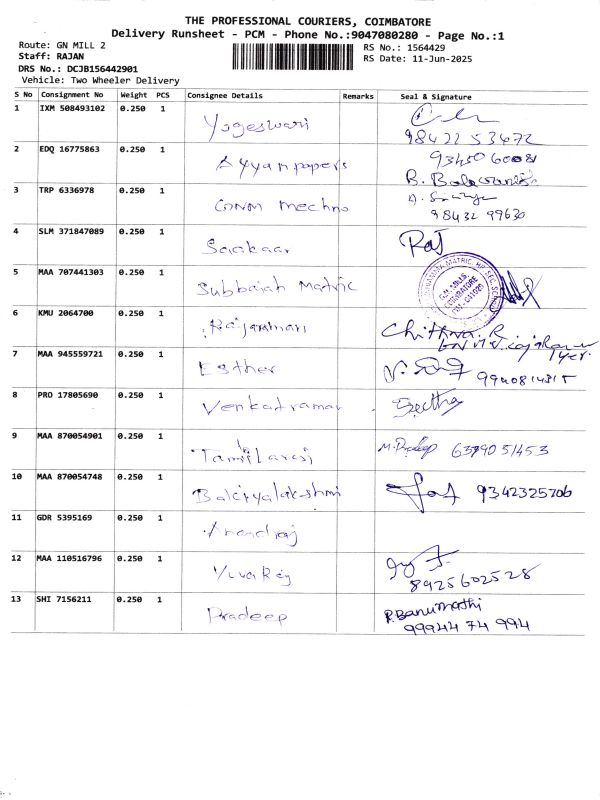 THE PROFESSIONAL COURIERS, COIMBATORE
Delivery Runsheet - PCM - Phone No.:9047080280 - Page No.:1
Route: GN MILL 2
Staff: RAJAN
DRS No.: DCJB156442901
Vehicle: Two Wheeler Delivery
RS No.: 1564429
RS Date: 11-Jun-2025
S No Consignment No Weight PCS Consignee Details Remarks Seal & Signature
1 IXM 508493102 0.250 1 Yogeswari
98422 53472
2 EDQ 16775863 0.250 1 Ayyan papers
3 TRP 6336978 0.250 1 Conn mechno
98432 99630
4 SLM 371847089 0.250 1 Saakaar Raj
5 MAA 707441303 0.250 1 Subbaiah Matric
G.N. MILLS, COIMBATORE
6 KMU 2064700 0.250 1 Rajamani
Chithra. R
7 MAA 945559721 0.250 1 Esther
8 PRO 17805690 0.250 1 Venkatraman Geetha
9 MAA 870054901 0.250 1 Tamilarasi M. Pradeep
10 MAA 870054748 0.250 1 9342325706
11 GDR 5395169 0.250 1 Anandraj
12 MAA 110516796 0.250 1 Vivaraj
8925602528
13 SHI 7156211 0.250 1 Pradeep P. Banumathi
99944 74 994